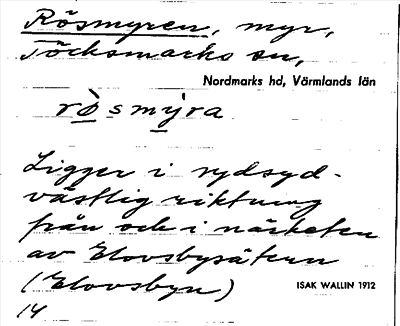 Rösmyren, myr,
Töcksmarks sn,
Nordmarks hd, Värmlands län
rò̱smý̱ra
Ligger i sydsyd-
västlig riktning
från och i närheten
av Elovsbysätern
(Elovsbyn)
ISAK WALLIN 1912
14